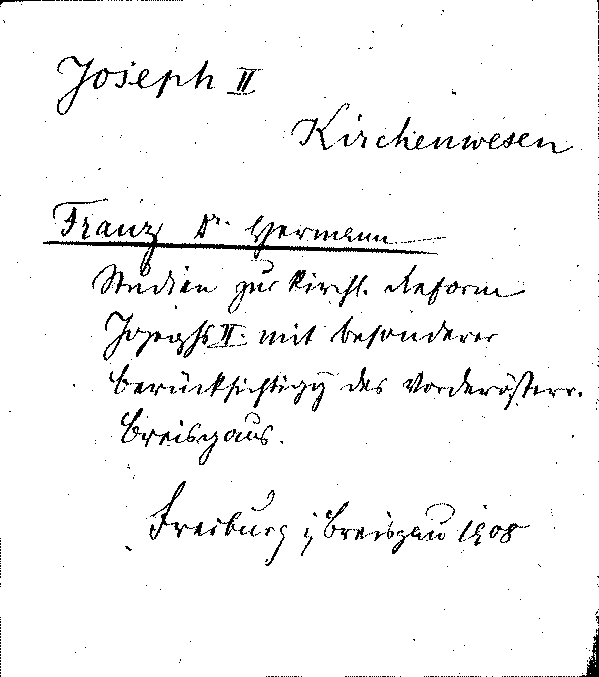 Joseph II
Kirchenwesen
Franz Dr. Hermann
Studien zur kirchl. Reform
Josephs II. mit besonderer
Berücksichtigg des vorderösterr.
Breisgaus.
Freiburg i/Breisgau 1908